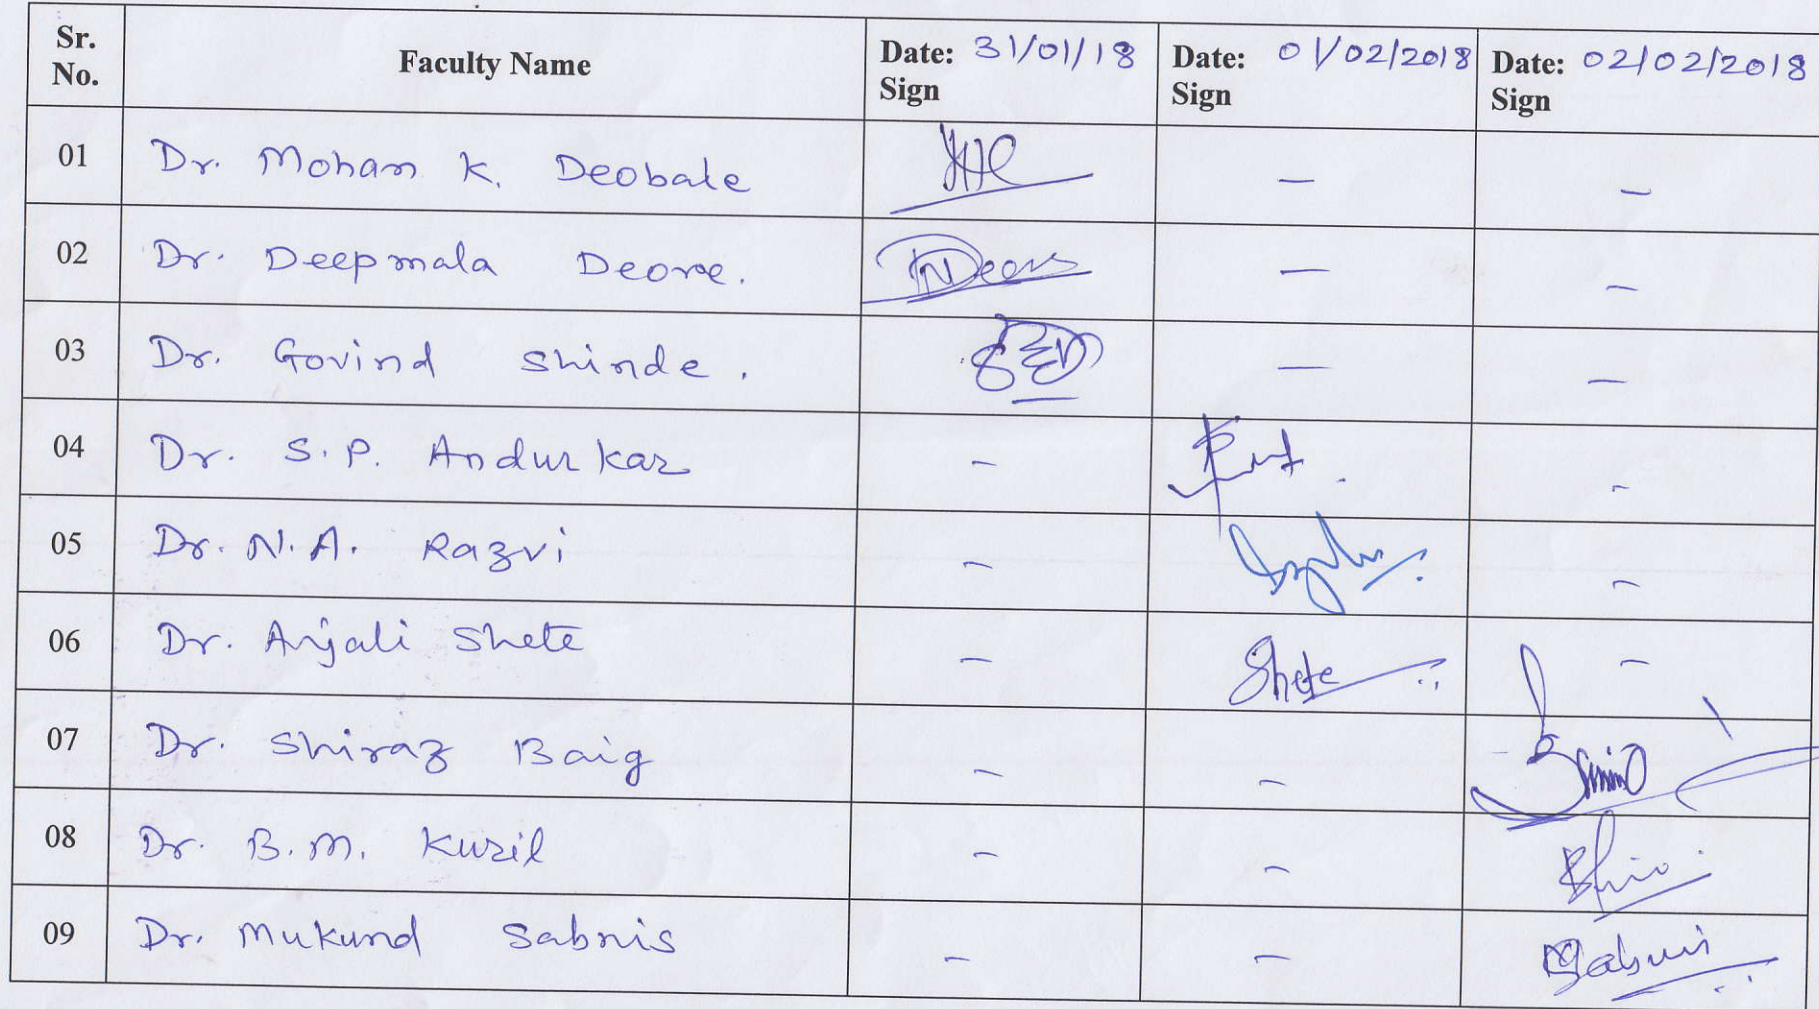 Sr. No. Faculty Name Date: 31/01/18 Sign Date: 01/02/2018 Sign Date: 02/02/2018 Sign
01 Dr. Mohan K. Deobale - -
02 Dr. Deepmala Deore. - -
03 Dr. Govind Shinde. - -
04 Dr. S.P. Andurkar - -
05 Dr. N.A. Razvi - -
06 Dr. Anjali Shete - Shete -
07 Dr. Shiraz Baig - -
08 Dr. B.M. Kuril - -
09 Dr. Mukund Sabnis - - Sabnis